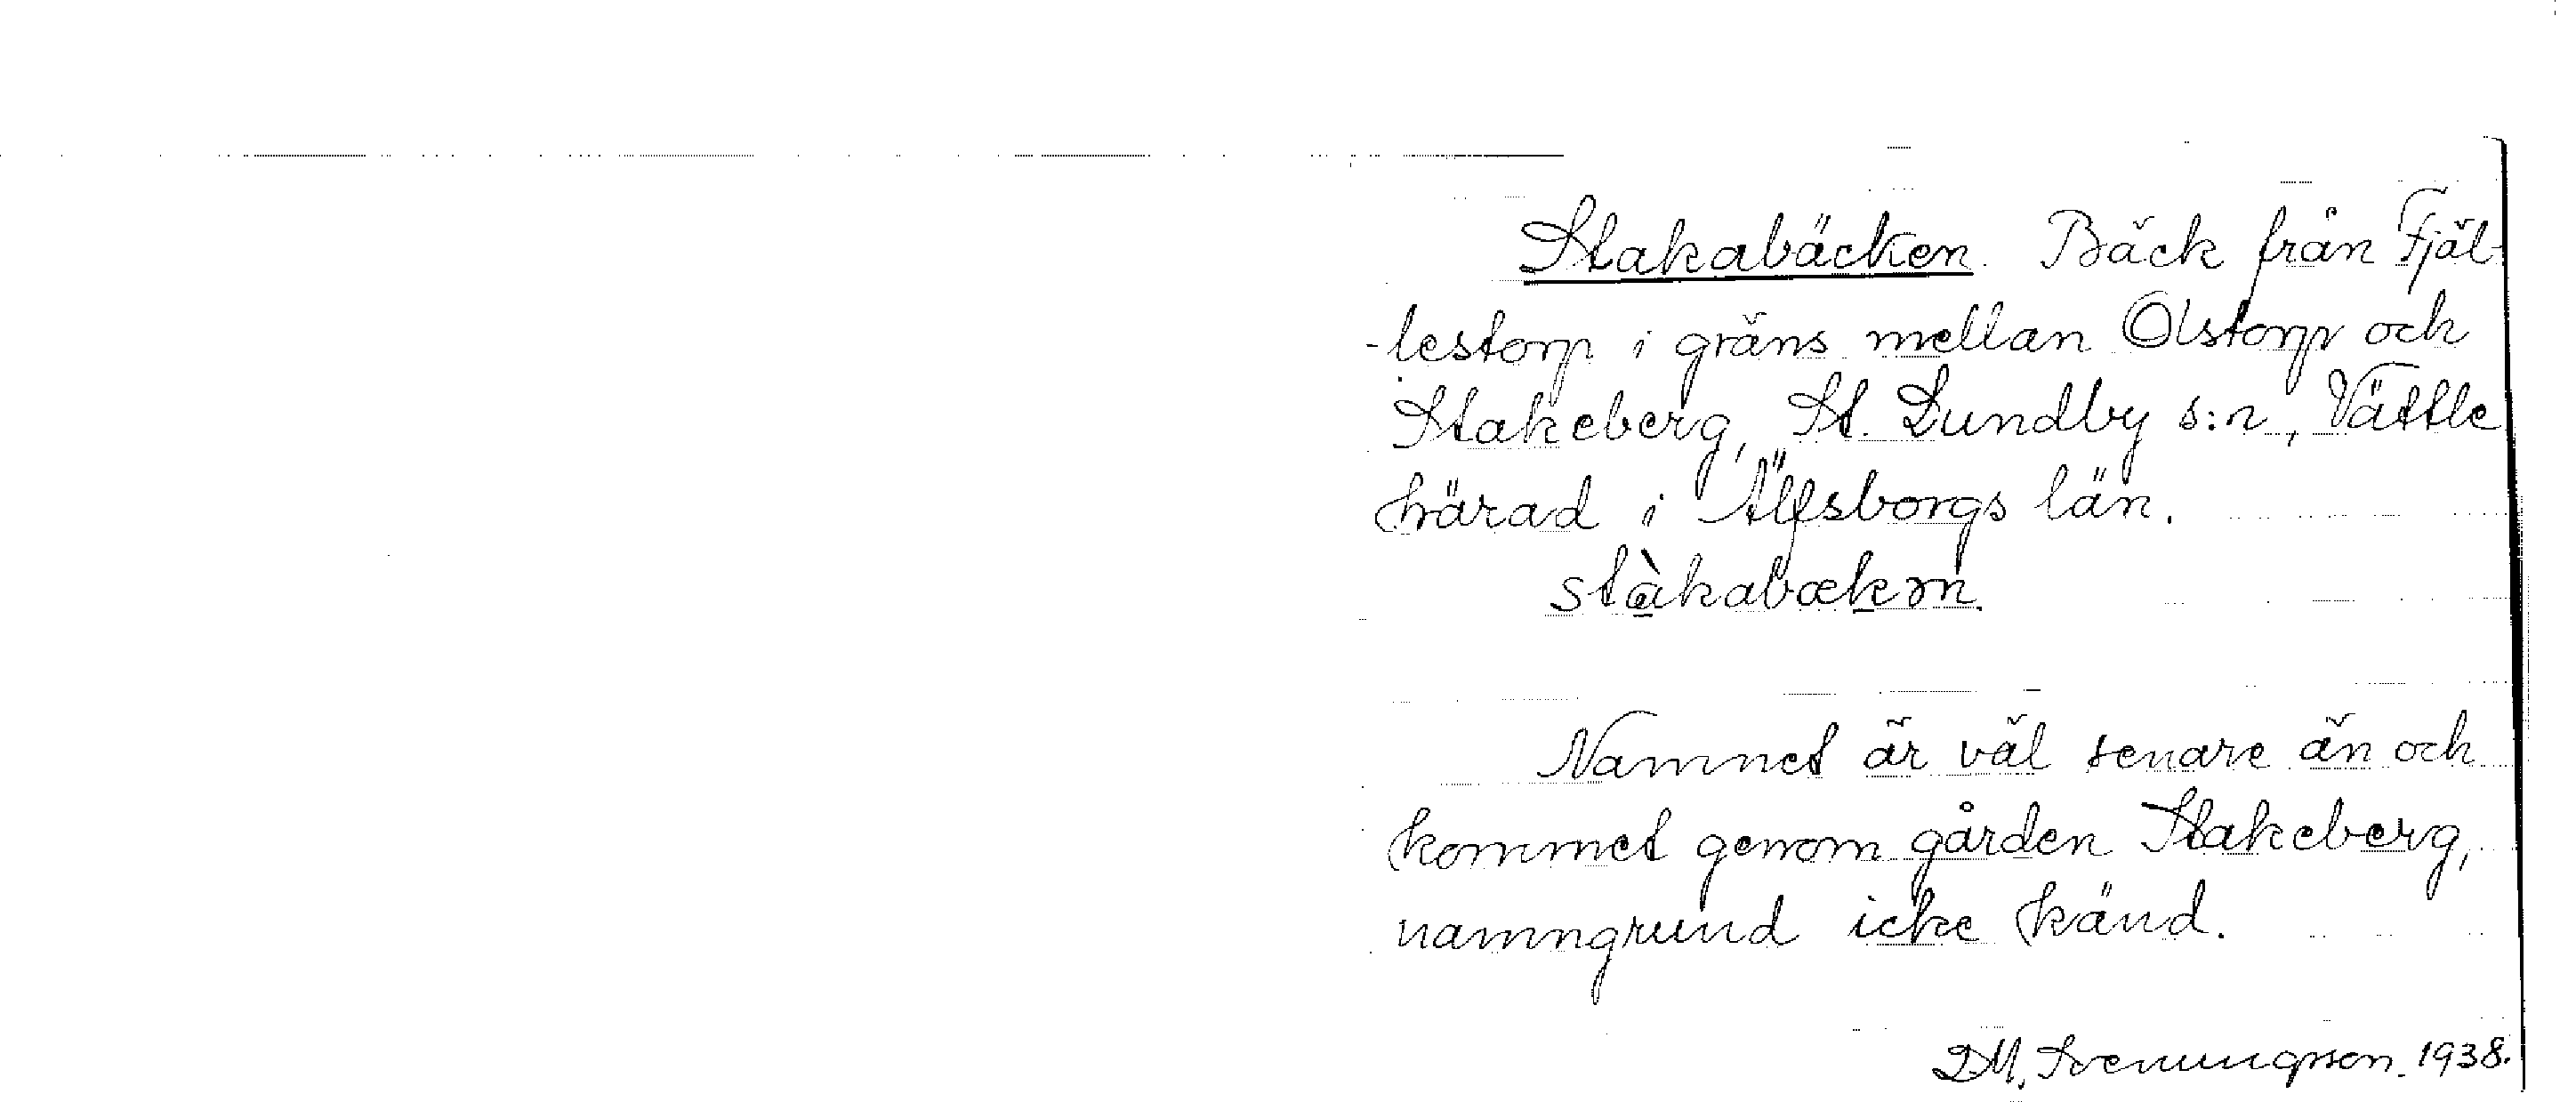 Stakabäcken. Bäck från Fjäl-
-lestorp i gräns mellan Olstorp och
Stakeberg, St. Lundby s:n, Vättle
härad i Älfsborgs län.
stàkabækən.
Namnet är väl senare än och
kommet genom gården Stakeberg,
namngrund icke känd.
D.M. Sveningsson. 1938.